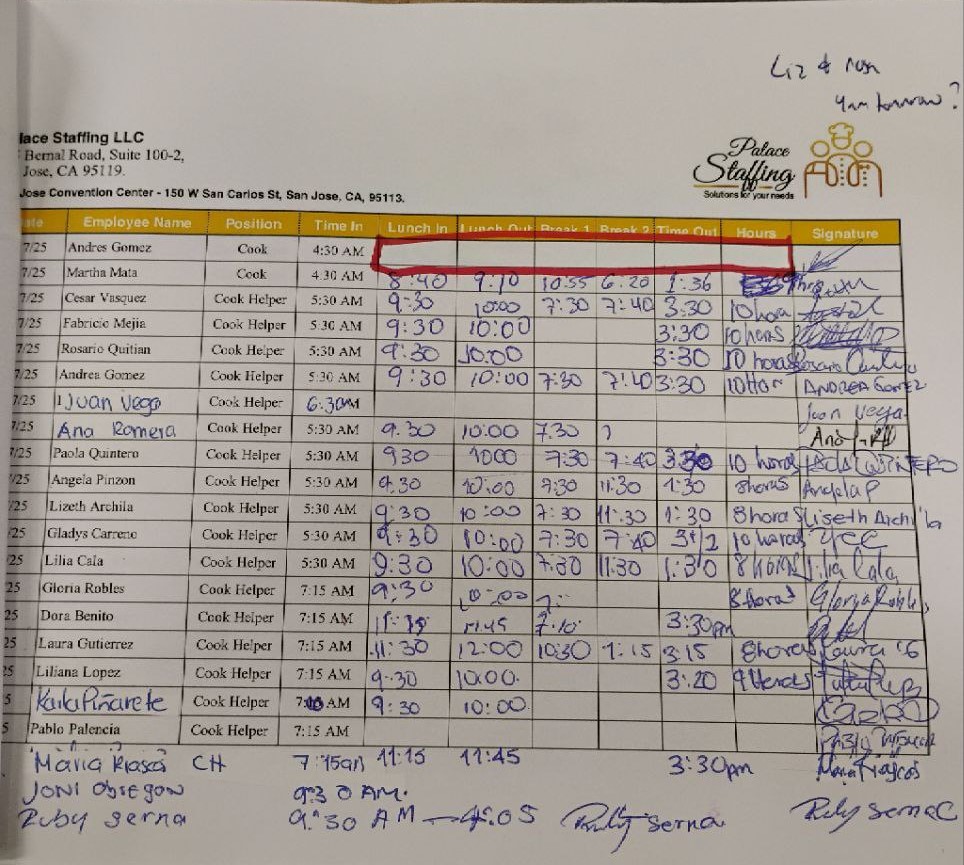 Liz &
4am tomorrow?
lace Staffing LLC
Bernal Road, Suite 100-2,
Jose, CA 95119.
Jose Convention Center - 150 W San Carlos St, San Jose, CA, 95113.
Palace
Staffing
Solutions for your needs
ate Employee Name Position Time In Lunch In Lunch Out Break 1 Break 2 Time Out Hours Signature
7/25 Andres Gomez Cook 4:30 AM
7/25 Martha Mata Cook 4:30 AM 8:40 9:10 10:55 6:20 1:36
7/25 Cesar Vasquez Cook Helper 5:30 AM 9:30 10:00 7:30 7:40 3:30 10 hora
7/25 Fabricio Mejia Cook Helper 5:30 AM 9:30 10:00 3:30 10 horas
7/25 Rosario Quitian Cook Helper 5:30 AM 9:30 10:00 3:30 10 horas Rosario
7/25 Andrea Gomez Cook Helper 5:30 AM 9:30 10:00 7:30 7:40 3:30 10 Hor ANDREA Gomez
7/25 Juan Vega Cook Helper 6:30AM Juan Vega
7/25 Ana Romera Cook Helper 5:30 AM 9.30 10:00 7.30 Ana
7/25 Paola Quintero Cook Helper 5:30 AM 930 1000 7:30 7:40 3:30 10 horas QUINTERO
/25 Angela Pinzon Cook Helper 5:30 AM 9:30 10:00 9:30 11:30 1:30 8horas Angela P
/25 Lizeth Archila Cook Helper 5:30 AM 9:30 10:00 7:30 11:30 1:30 8horas Liseth Archila
/25 Gladys Carreno Cook Helper 5:30 AM 9:30 10:00 7:30 7:40 10 horas
/25 Lilia Cala Cook Helper 5:30 AM 9:30 10:00 7:30 11:30 1:30 8 horas Lilia Cala
25 Gloria Robles Cook Helper 7:15 AM 9:30 10:00 7: 8horas Gloria Robles
25 Dora Benito Cook Helper 7:15 AM 11:15 11:45 7:10 3:30pm
25 Laura Gutierrez Cook Helper 7:15 AM 11:30 12:00 10:30 1:15 3:15 8horas Laura G
25 Liliana Lopez Cook Helper 7:15 AM 9:30 10:00. 3:20 9 Horas
5 Karla Piñarete Cook Helper AM 9:30 10:00.
5 Pablo Palencia Cook Helper 7:15 AM
Maria CH 7:15am 11:15 11:45 3:30pm Maria
JONI OBREGON 9:30 AM.
Ruby Serna 9:30 AM 4:05 Ruby Serna Ruby Serna C